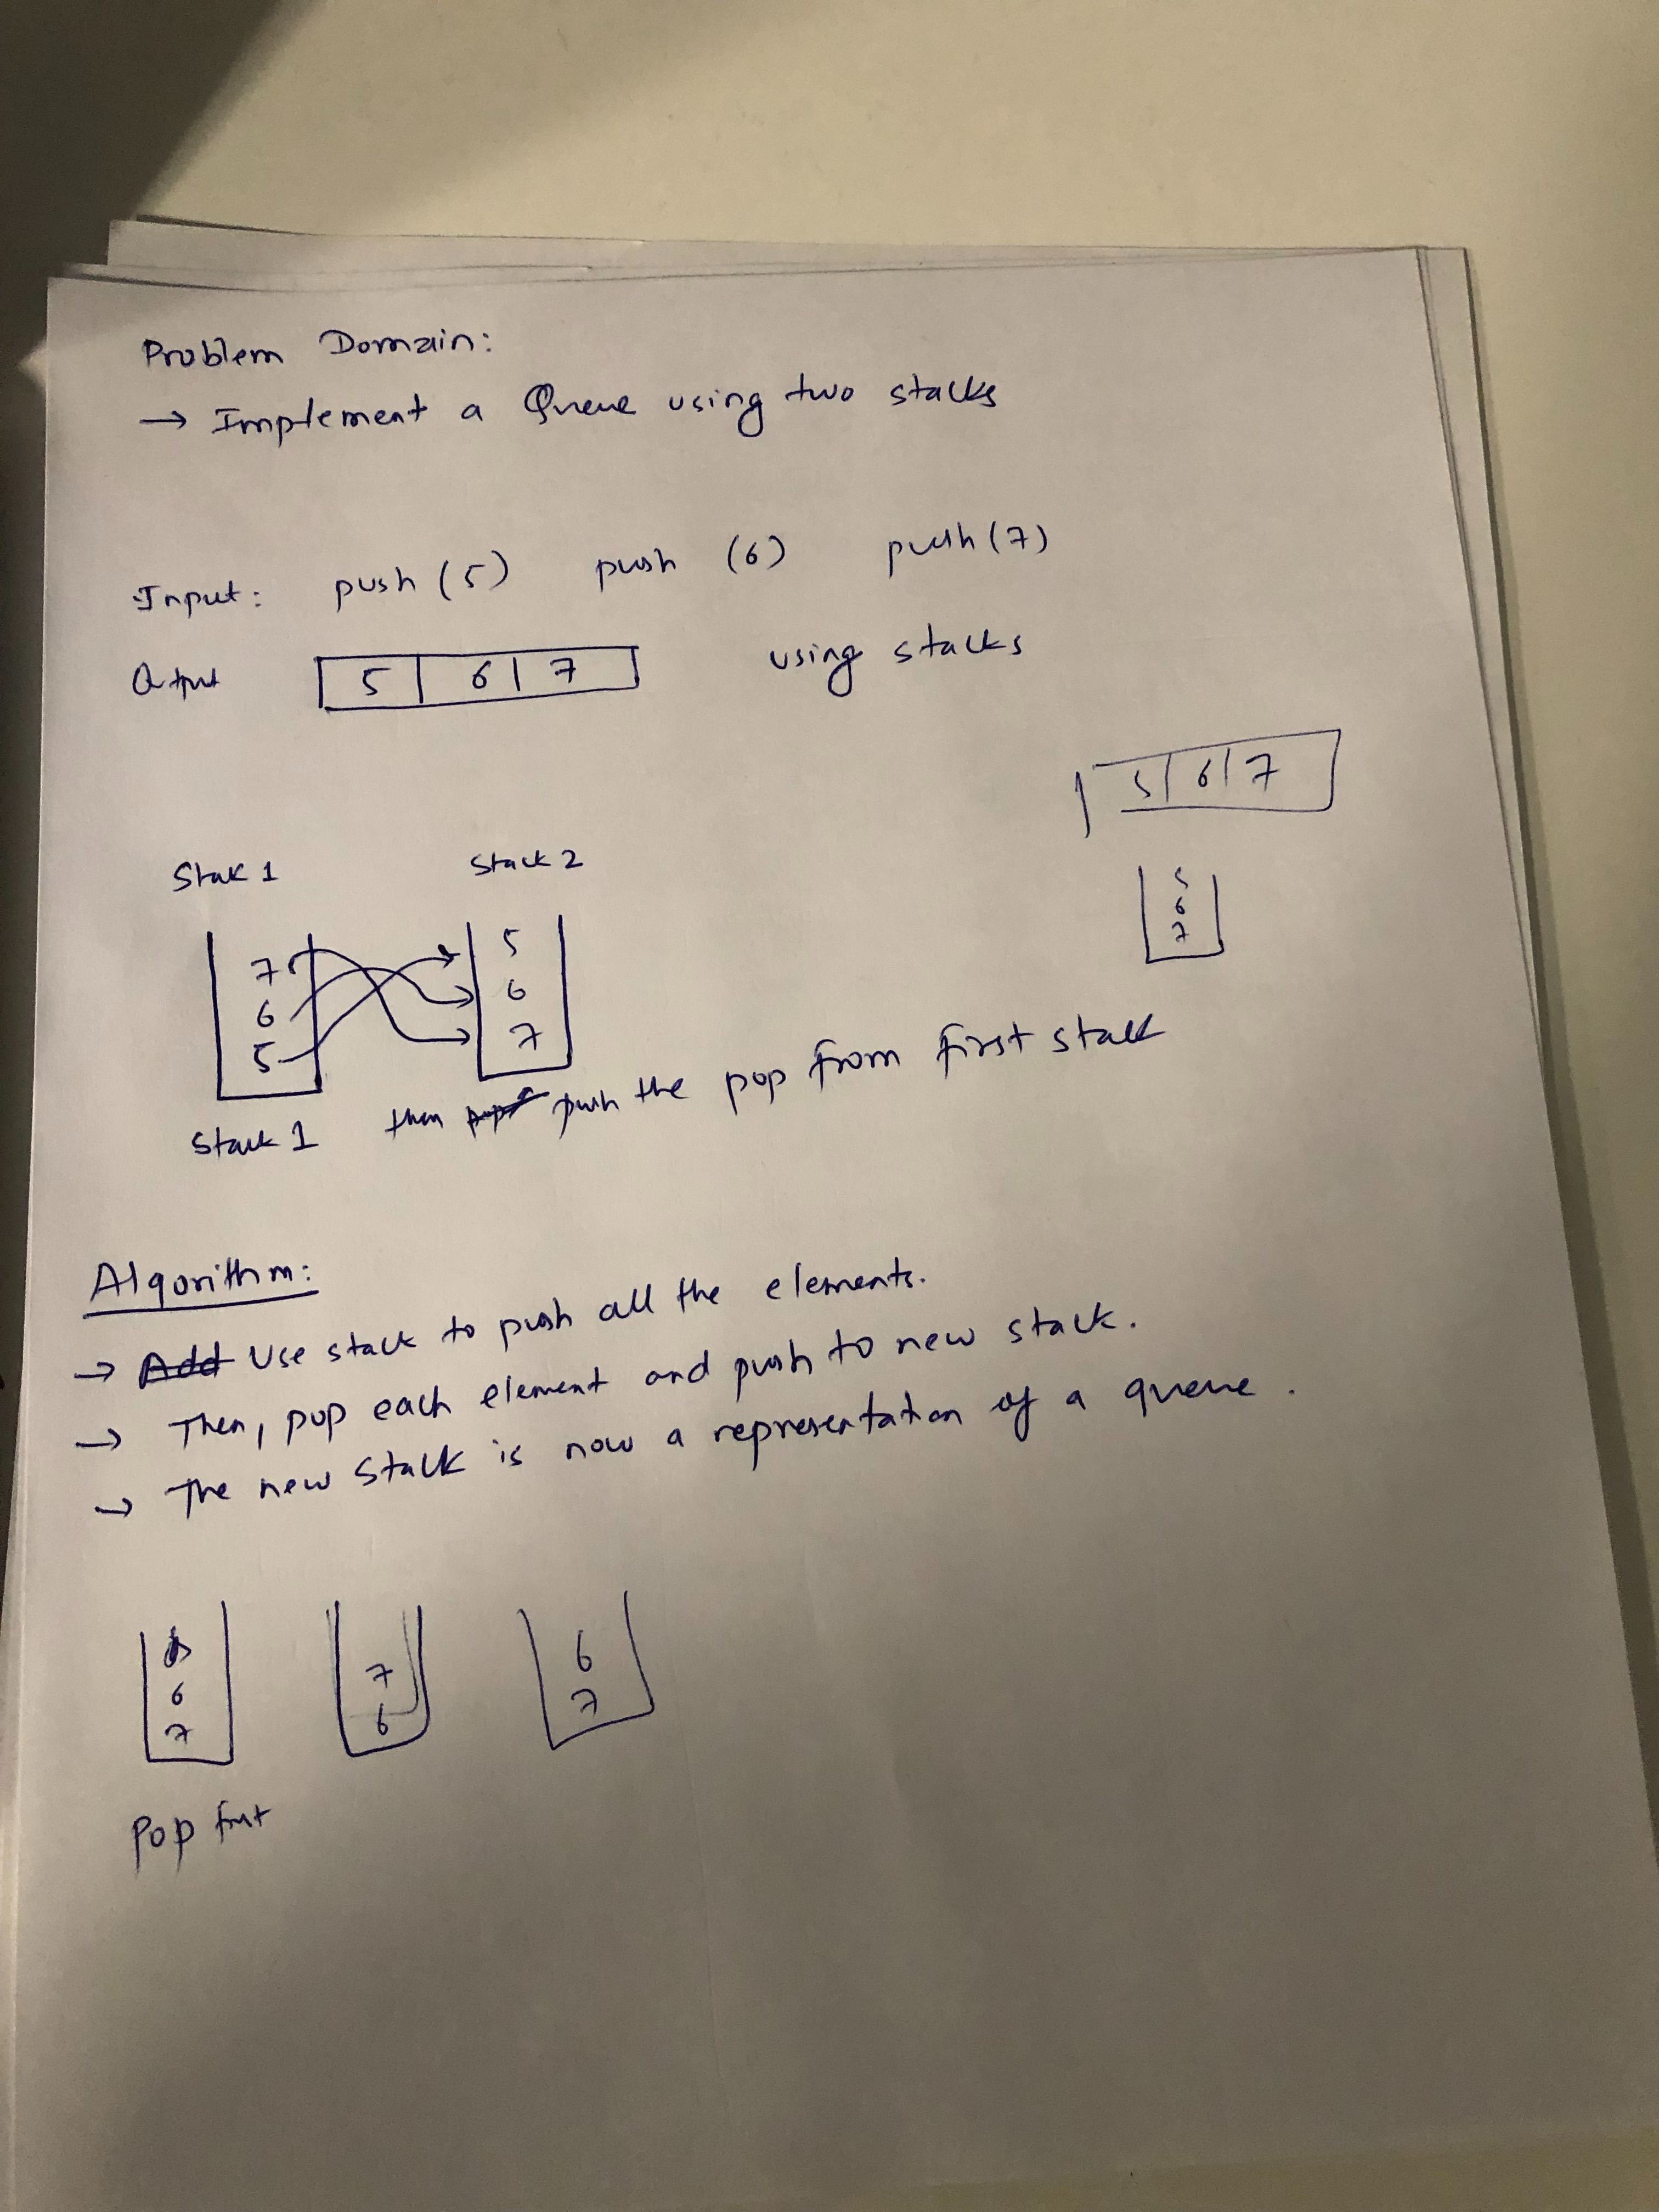 Problem Domain:
→ Implement a Queue using two stacks
Input: push (5) push (6) push (7)
Output 5 | 6 | 7 using stacks
5 | 6 | 7
Stak 1 Stack 2
5
6
7
7
6
5
5
6
7
Stack 1 then push the pop from first stack
Algorithm:
→ Add Use stack to push all the elements.
→ Then, pop each element and push to new stack.
→ The new Stack is now a representation of a queue.
6
7
7
6
6
7
Pop first